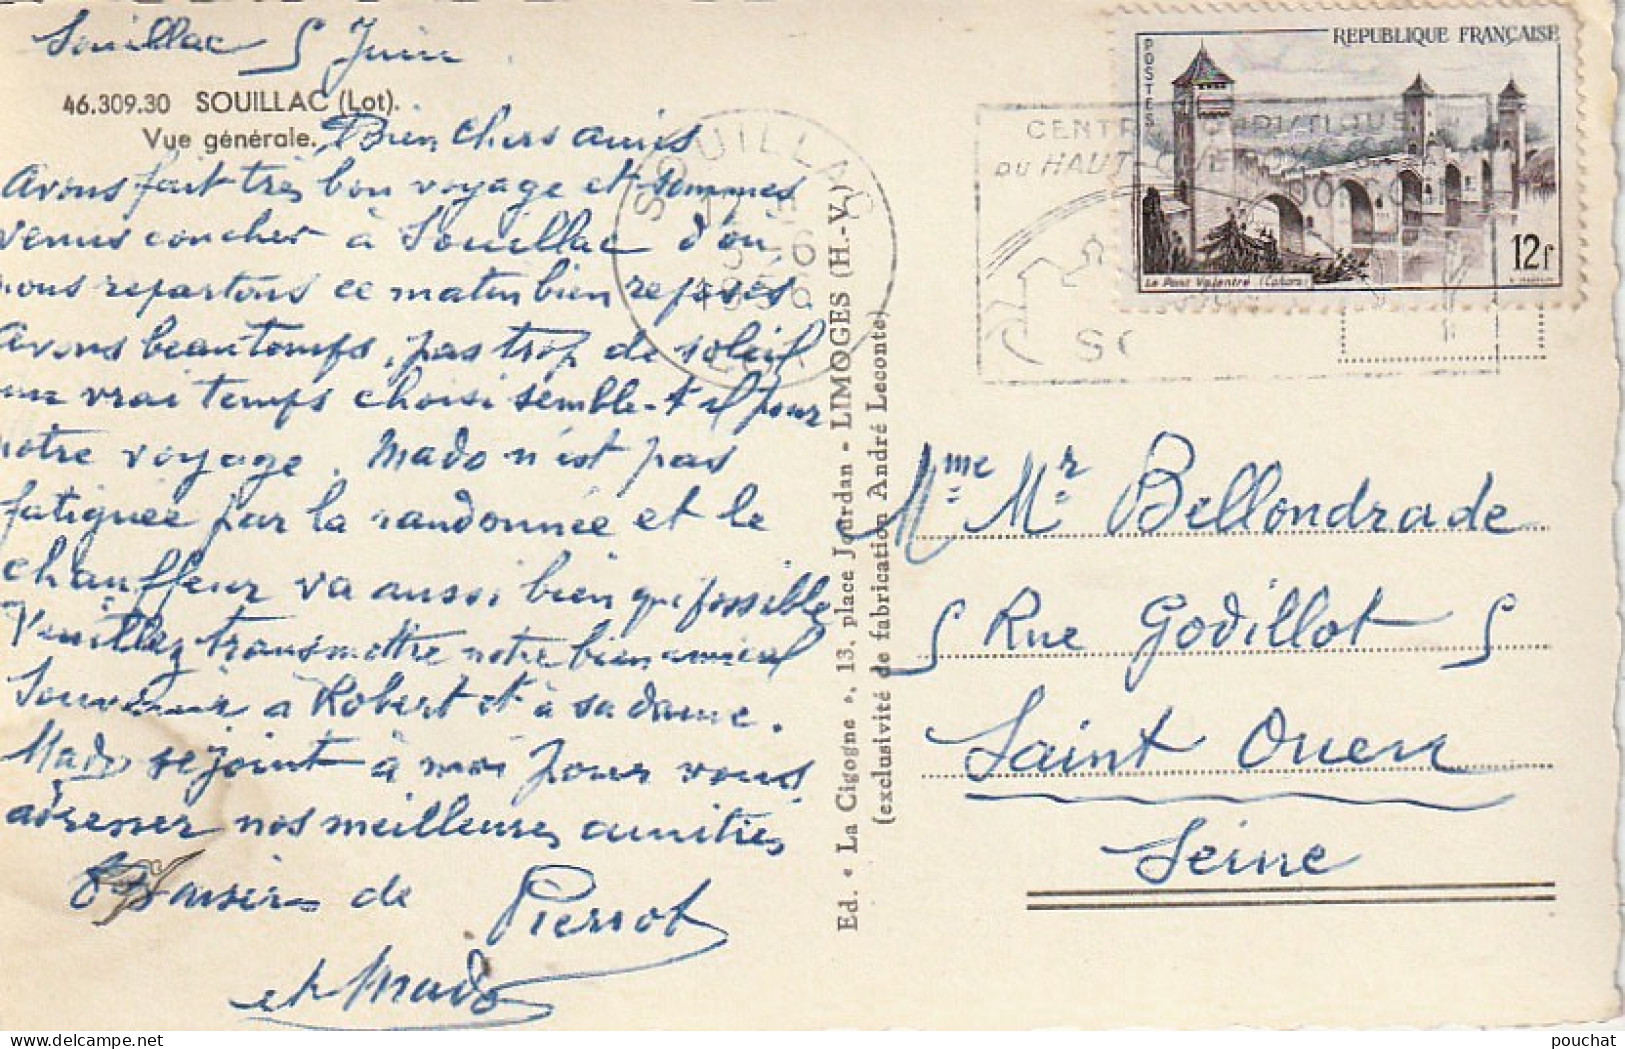 Souillac 5 Juin
46.309.30 SOUILLAC (Lot).
Vue générale.
Bien Chers amis
Avons fait très bon voyage et sommes
venus coucher à Souillac d'où
nous repartons ce matin bien reposés
Avons beau temps, pas trop de soleil
un vrai temps choisi semble-t-il pour
notre voyage. Mado n'est pas
fatiguée par la randonnée et le
chauffeur va aussi bien que possible
Veuillez transmettre notre bien amical
Souvenir à Robert et à sa dame.
Mado se joint à moi pour vous
adresser nos meilleures amitiés
Baisers de Pierrot
et Mado
Ed. « La Cigogne », 13, place Jourdan - LIMOGES (H.-V.)
(exclusivité de fabrication André Leconte)
SOUILLAC
1956
LOT
REPUBLIQUE FRANÇAISE
POSTES
Le Pont Valentré (Cahors)
12f
CENTRE TOURISTIQUE
DU HAUT-QUERCY
Mme Mr Bellondrade
5 Rue Godillot 5
Saint Ouen
Seine
pouchat